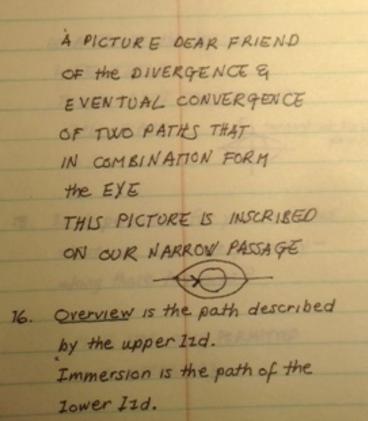 A PICTURE DEAR FRIEND
OF the DIVERGENCE &
EVENTUAL CONVERGENCE
OF TWO PATHS THAT
IN COMBINATION FORM
the EYE
THIS PICTURE IS INSCRIBED
ON OUR NARROW PASSAGE
16. Overview is the path described
by the upper lid.
Immersion is the path of the
lower lid.